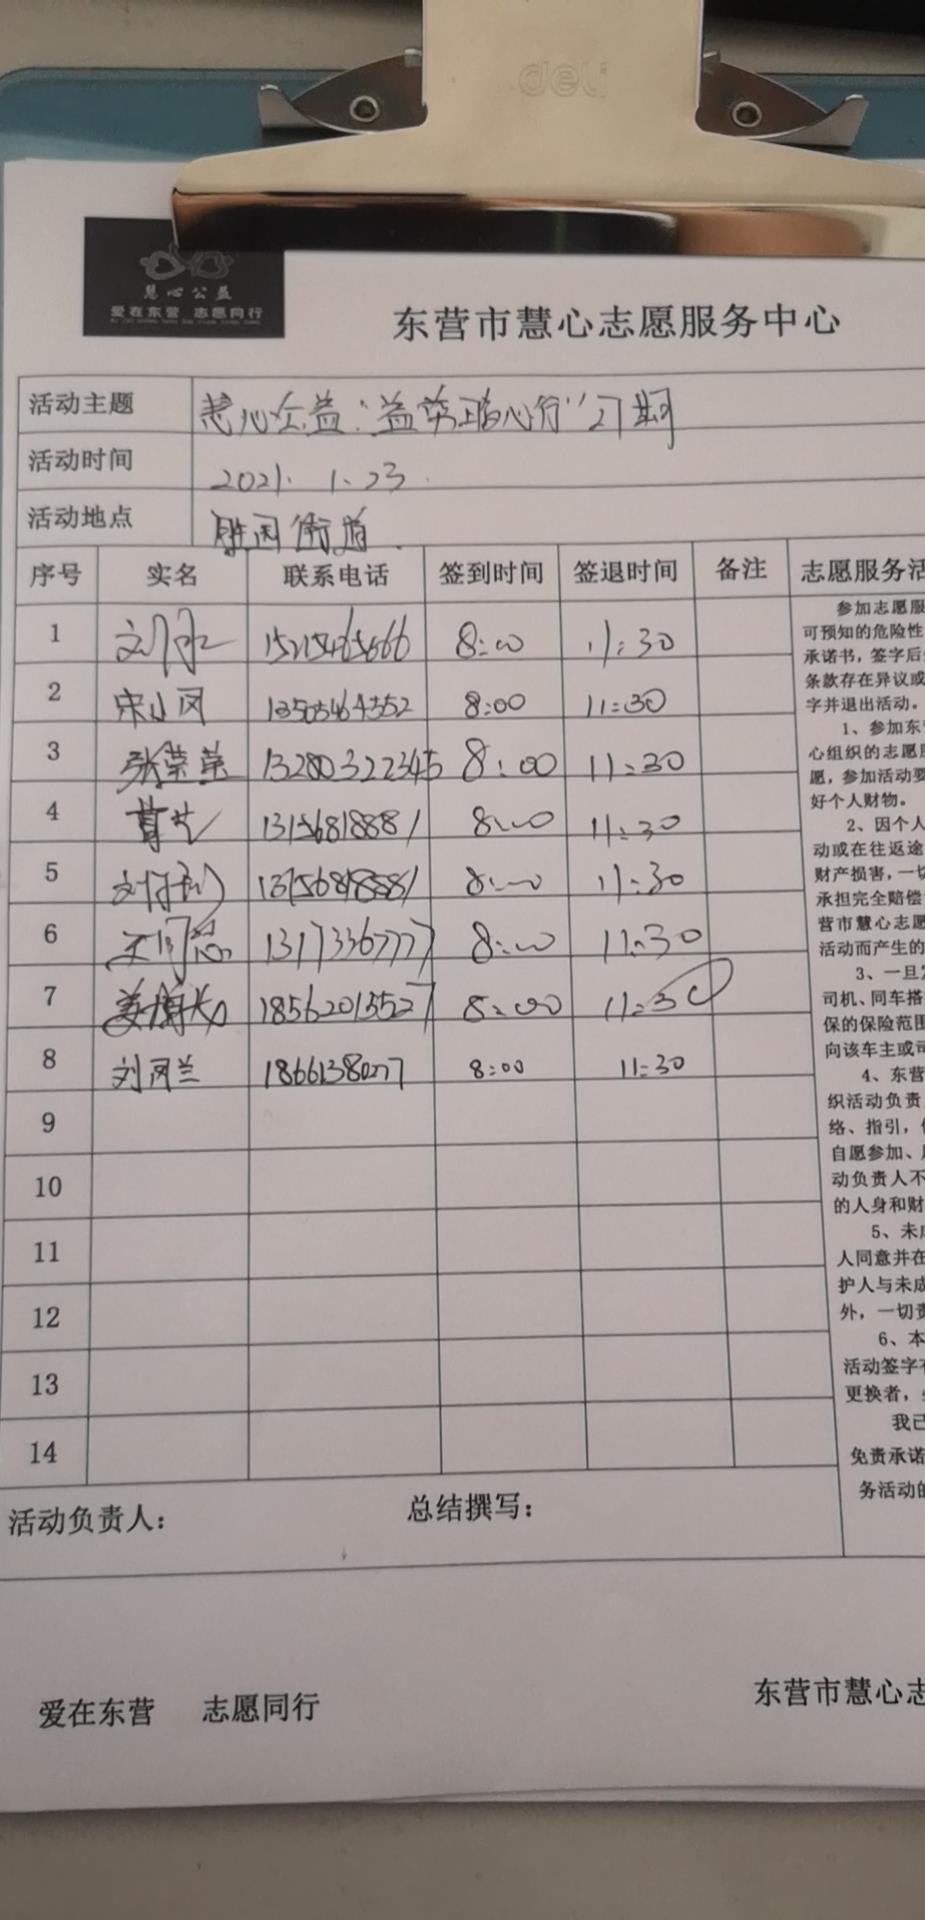 deli
慧心公益
爱在东营 志愿同行
东营市慧心志愿服务中心
活动主题 慧心公益"益 暖心行"27期
活动时间 2021. 1. 23.
活动地点 胜园街道.
序号 实名 联系电话 签到时间 签退时间 备注 志愿服务活
1 8:00 11:30
2 宋小凤 13505464552 8:00 11:30
3 张荣荣 13280322345 8:00 11:30
4 13156818881 8:00 11:30
5 8:00 11:30
6 13173367777 8:00 11:30
7 18562013527 8:00 11:30
8 刘凤兰 18661380277 8:00 11:30
9
10
11
12
13
14
参加志愿服
可预知的危险性
承诺书，签字后
条款存在异议或
字并退出活动。
1、参加东
心组织的志愿服
愿，参加活动要
好个人财物。
2、因个人
动或在往返途
财产损害，一切
承担完全赔偿
营市慧心志愿
活动而产生的
3、一旦发
司机、同车搭
保的保险范围
向该车主或司
4、东营
织活动负责
络、指引，
自愿参加、
动负责人不
的人身和财
5、未成
人同意并在
护人与未成
外，一切责
6、本
活动签字
更换者，
我已
免责承诺
务活动的
活动负责人： 总结撰写：
爱在东营 志愿同行 东营市慧心志